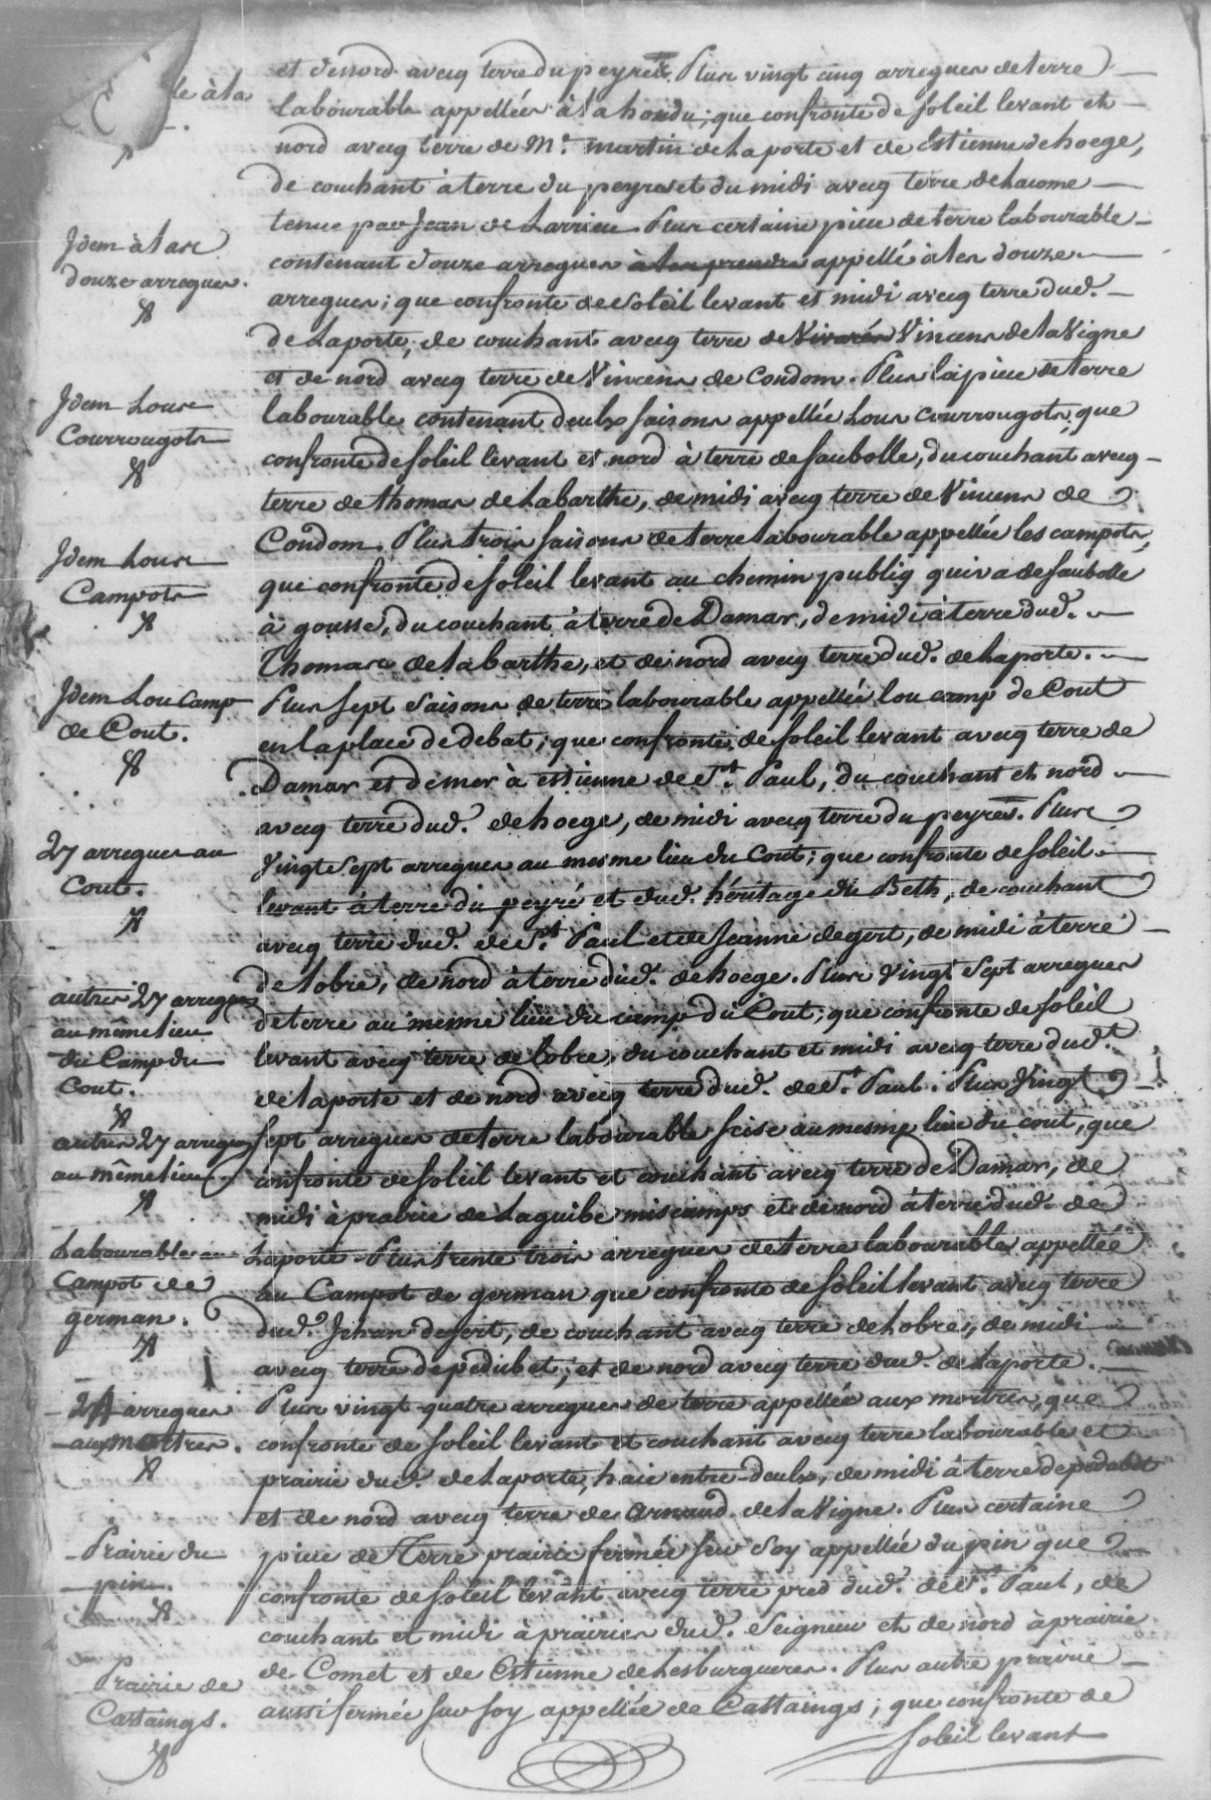 le à la
et de nord avecq terre du peyret. Plus vingt cinq arregues de terre
labourable appellées à la hondu; que confronte de soleil levant et
nord avecq terre de Mr. martin de Laporte et de Estienne dehoege,
de couchant à terre du peyret et du midi avecq terre de Lacome
tenue par Jean de Larrieu. Plus certaine piece de terre labourable
Idem à las
douze arregues.
contenant douze arregues à les prendre appellé à les douze
arregues; que confronte de soleil levant et midi avecq terre dud.
de Laporte, de couchant avecq terre de Vivarés Vincens de la Vigne
et de nord avecq terre de Vincens de Condom. Plus la piece de terre
Idem Lous
Courrougots
labourable contenant deulx saisons appellée Lous Courrougots, que
confronte de soleil levant et nord à terre de saubolle, du couchant avecq
terre de thomas de Labarthe, de midi avecq terre de Vincens de
Condom. Plus trois saisons de terre labourable appellée les campots,
Idem Lous
Campots
que confronte de soleil levant au chemin publiq qui va de saubolle
à gousse, du couchant à terre de Damar, de midi à terre dud.
Thomas de Labarthe, et de nord avecq terre dud. de Laporte.
Idem Lou Camp
de Cout.
Plus sept saisons de terre labourable appellée lou camp de Cout
en la place de debat, que confronte de soleil levant avecq terre de
Damar et demer à estienne de St. Paul, du couchant et nord
avecq terre dud. dehoege, de midi avecq terre du peyret. Plus
27 arregues au
Cout.
Vingt Sept arregues au mesme lieu du Cout; que confronte de soleil
levant à terre du peyré et dud. héritage du Beth, de couchant
avecq terre dud. de St. Paul et de Jeanne degert, de midi à terre
de Lobre, de nord à terre dud. dehoege. Plus Vingt Sept arregues
autres 27 arregues
au même lieu
du Camp du
Cout.
de terre au mesme lieu du camp du Cout; que confronte de soleil
levant avecq terre de Lobre, du couchant et midi avecq terre dudt.
de Laporte et de nord avecq terre dud. de St. Paul. Plus Vingt
autres 27 arregues
au même lieu
sept arregues de terre labourable scise au mesme lieu du cout, que
confronte de soleil levant et couchant avecq terre de Damar, de
midi à prairie de Laguibe miscamps et de nord à terre dud. de
Labourable au
Campot de
german.
Laporte. Plus trente trois arregues de terre labourables appellée
au Campot de german que confronte de soleil levant avecq terre
dud. Jehan degert, de couchant avecq terre de Lobre, de midi
avecq terre depedubet; et de nord avecq terre dud. de Laporte.
24 arregues
aux mortres.
Plus vingt quatre arregues de terre appellée aux mortres, que
confronte de soleil levant et couchant avecq terre labourable et
prairie dud. de Laporte, haie entre-deulx, de midi à terre depedubet
et de nord avecq terre de Arnaud de la Vigne. Plus certaine
Prairie du
pin.
piece de Terre prairie fermée sur soy appellée du pin que
confronte de soleil levant avecq terre pred dud. de St. Paul, de
couchant et midi à prairies dud. Seigneur et de nord à prairie
Prairie de
Castaings.
de Comet et de Estienne de Lesburgueres. Plus autre prairie
aussi fermée sur soy appellée de Castaings; que confronte de
soleil levant